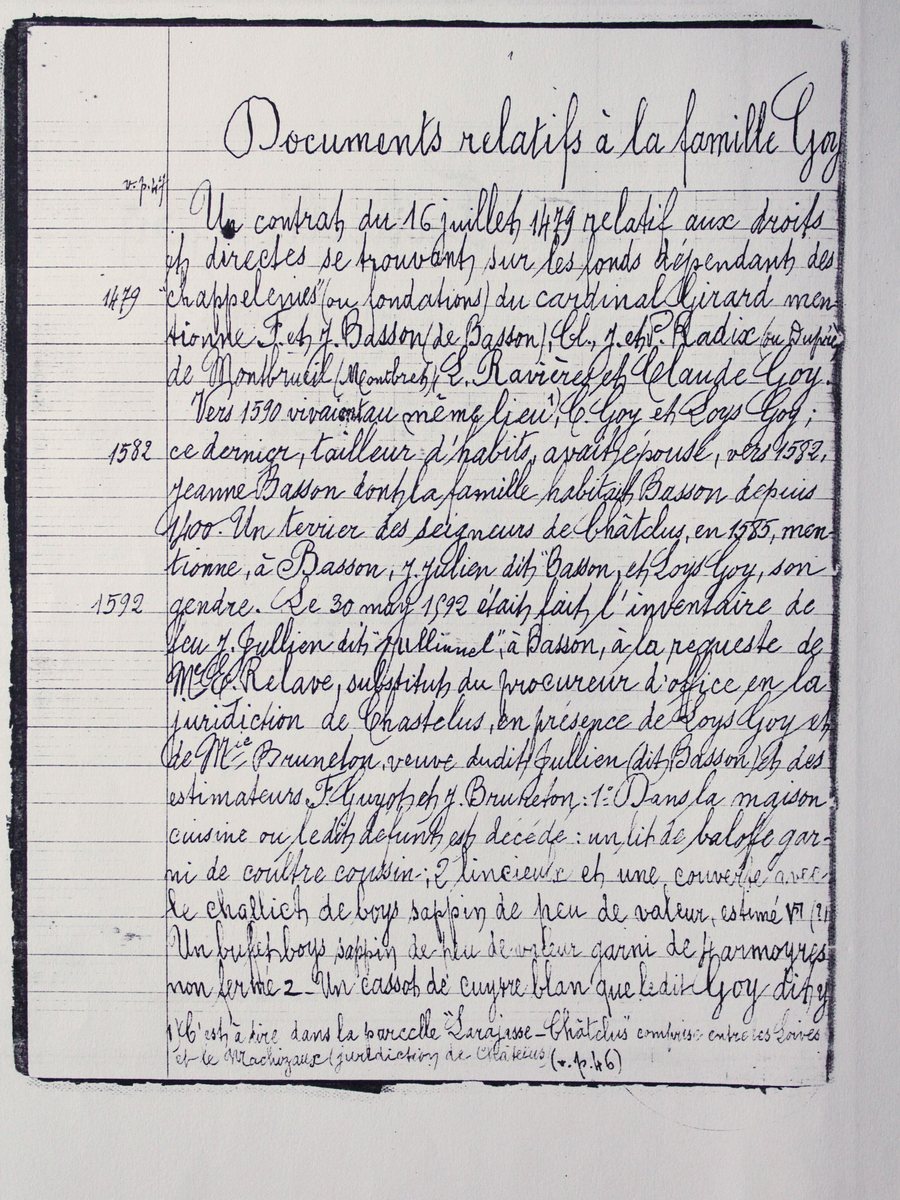 1
Documents relatifs à la famille Goy
v. p. 47
Un contrat du 16 juillet 1479 relatif aux droits
et directes se trouvant sur les fonds dépendant des
1479 "chappelenies" (ou fondations) du cardinal Girard men-
tionne F. et J. Basson (de Basson), Cl., J. et P. Radix (ou Dupré)
de Montbrueil (Montbret), L. Ravières et Claude Goy.
Vers 1590 vivaient au même lieu¹, C. Goy et Loys Goy;
1582 ce dernier, tailleur d'habits, avait épousé, vers 1582,
Jeanne Basson dont la famille habitait Basson depuis
1400. Un terrier des seigneurs de Châtelus, en 1585, men-
tionne, à Basson, J. Julien dit "Basson, et Loys Goy, son
1592 gendre. Le 30 may 1592 était fait l'inventaire de
feu J. Jullien dit "Jullinnel", à Basson, à la requeste de
Me E. Relave, substitut du procureur d'office en la
juridiction de Chastelus, en présence de Loys Goy et
de Mie Bruneton, veuve dudit Jullien (dit Basson) et des
estimateurs F. Guyot et J. Bruneton : 1° Dans la maison
cuisine ou ledit defunt est décédé : un lit de baloffe gar-
ni de coultre coussin; 2 lincieulx et une couverte avec
le challict de boys sappin de peu de valeur, estimé
Un bufet boys sappin de peu de valeur garni de 4 armoyres
non fermé 2 - Un cassot de cuyvre blan que ledit Goy dit y
1) C'est à dire dans la parcelle "Larajasse-Châtelus" comprise entre les Loives
et le Machizaux (juridiction de Châtelus (v. p. 46)